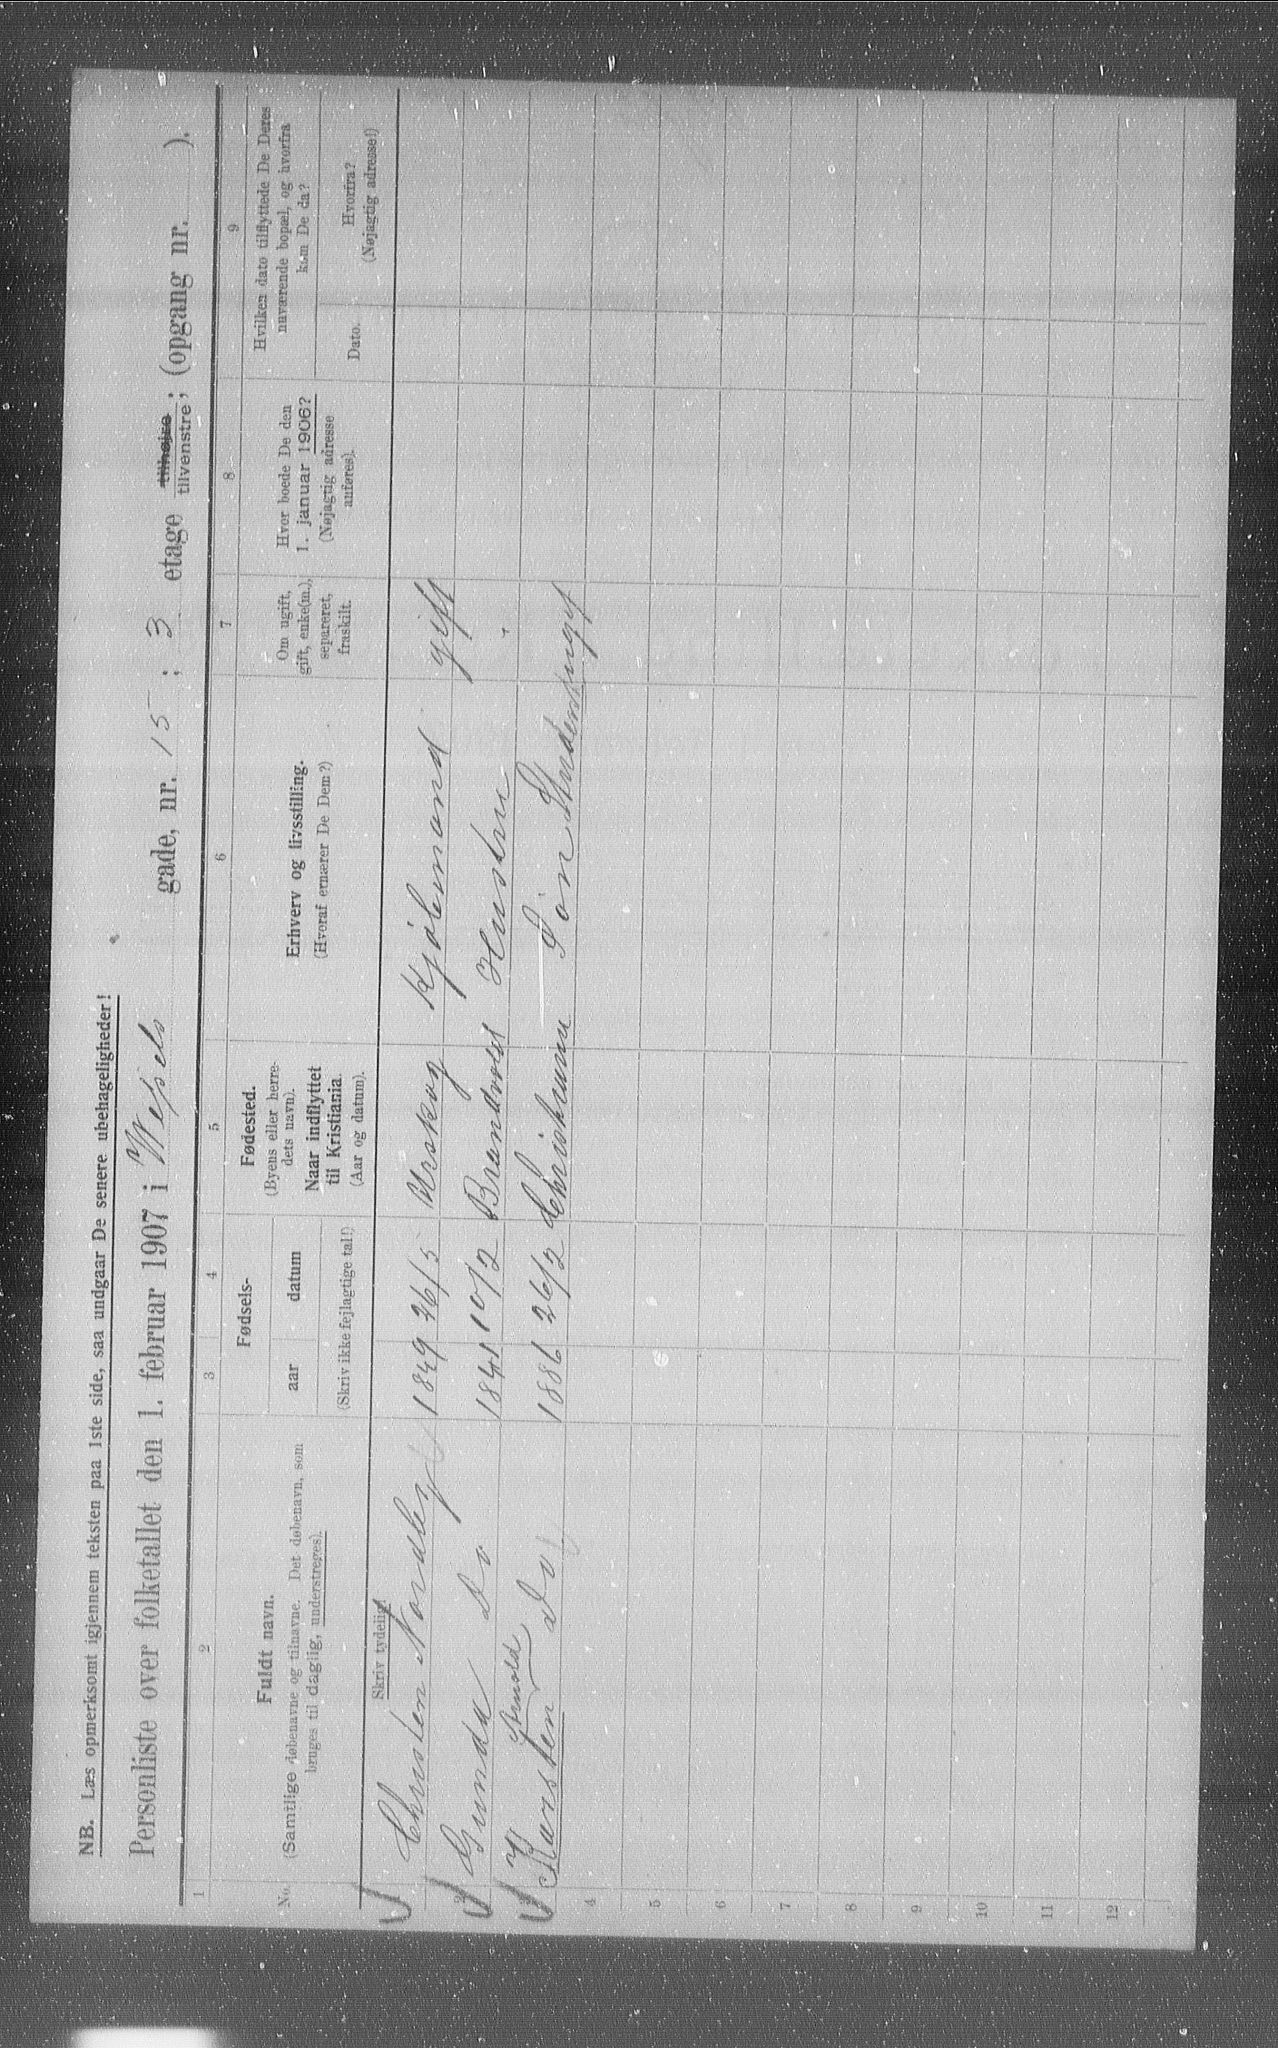 NB. Læs opmerksomt igjennem teksten paa 1ste side, saa undgaar De senere ubehageligheder!
Personliste over folketallet den 1. februar 1907 i Wessels gade, nr. 15 ; 3 etage tilhøjre tilvenstre ; (opgang nr. ).
1 2 3 4 5 6 7 8 9
No. Fuldt navn. (Samtlige døbenavne og tilnavne. Det døbenavn, som bruges til daglig, understreges).
Skriv tydelig!
Fødsels-
aar datum
(Skriv ikke fejlagtige tal!)
Fødested. (Byens eller herredets navn).
Naar indflyttet til Kristiania. (Aar og datum).
Erhverv og livsstilling. (Hvoraf ernærer De Dem?)
Om ugift, gift, enke(m.), separeret, fraskilt.
Hvor boede De den 1. januar 1906? (Nøjagtig adresse anføres).
Hvilken dato tilflyttede De Deres nuværende bopæl, og hvorfra kom De da?
Dato. Hvorfra? (Nøjagtig adresse!)
Christen Nordby 1849 26/5 Urskog Kjølemand gift
2 Gunda Do 1841 10/2 Brandvold Hustru
3 Karsten Arnold Do 1886 26/2 Christiania Søn Student ugift
4
5
6
7
8
9
10
11
12